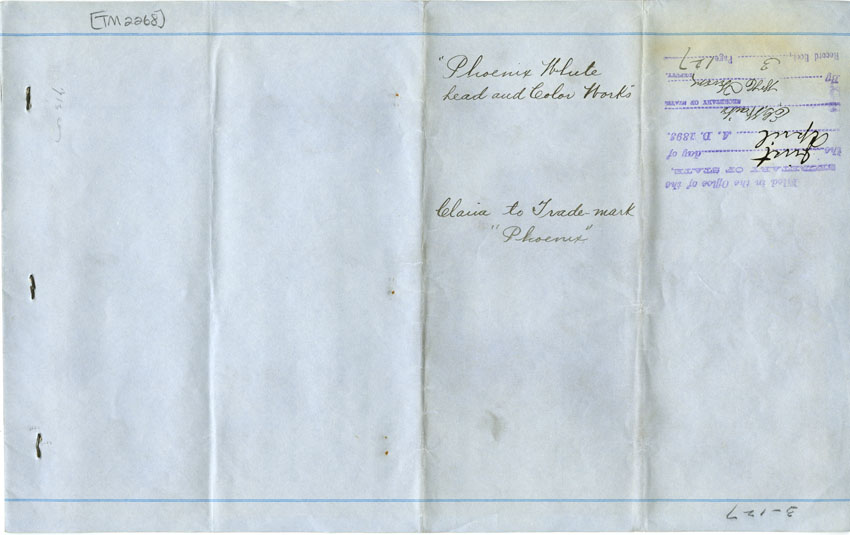 [TM2268]
"Phoenix White
Lead and Color Works"
Claim to Trade-mark
"Phoenix"
Filed in the Office of the
SECRETARY OF STATE,
the First day of
April A. D. 1895.
SECRETARY OF STATE.
By
DEPUTY.
Record Book 3 Page 127
3-127